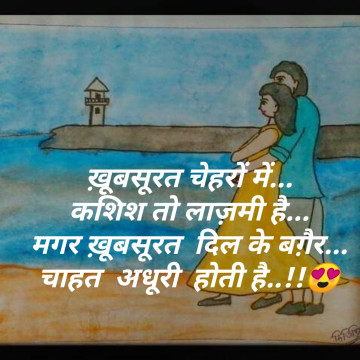 ख़ूबसूरत चेहरों में...
कशिश तो लाज़मी है...
मगर ख़ूबसूरत दिल के बग़ैर...
चाहत अधूरी होती है..!!😍